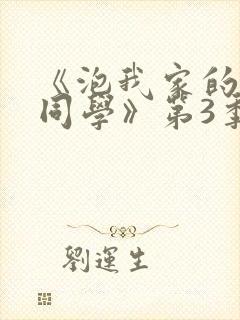 《泡我家的
同學》第3季
劉運生